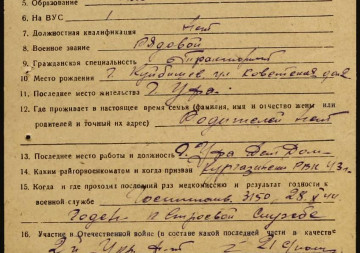 5. Образование
6. На ВУС 1
7. Должностная квалификация нет
8. Военное звание Рядовой
9. Гражданская специальность
10 Место рождения г. Куйбышев, ул. Советская дом
11. Последнее место жительства г. Уфа
12. Где проживает в настоящее время семья (фамилия, имя и отчество жены или
родителей и точный их адрес) Родителей нет
13. Последнее место работы и должность г. Уфа Дет Дом
14. Каким райгорвоенкоматом и когда призван РВК 43 г.
15. Когда и где проходил последний раз медкомиссию и результат годности к
военной службе Госпиталь 3150, 28
Годен к строевой службе
16. Участие в Отечественной войне (в составе какой последней части в качестве
2й Укр. с 21